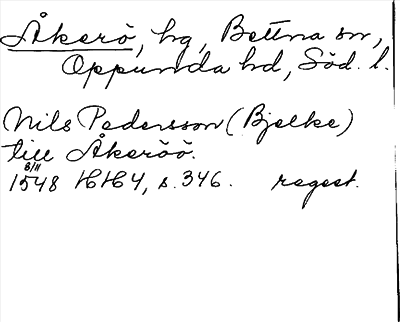 Åkerö, hg, Bettna sn,
Oppunda hd, Söd. l.
Nils Pedersson (Bjelke)
till Åkeröö.
8/11
1548 HH 4, s. 346. regest.